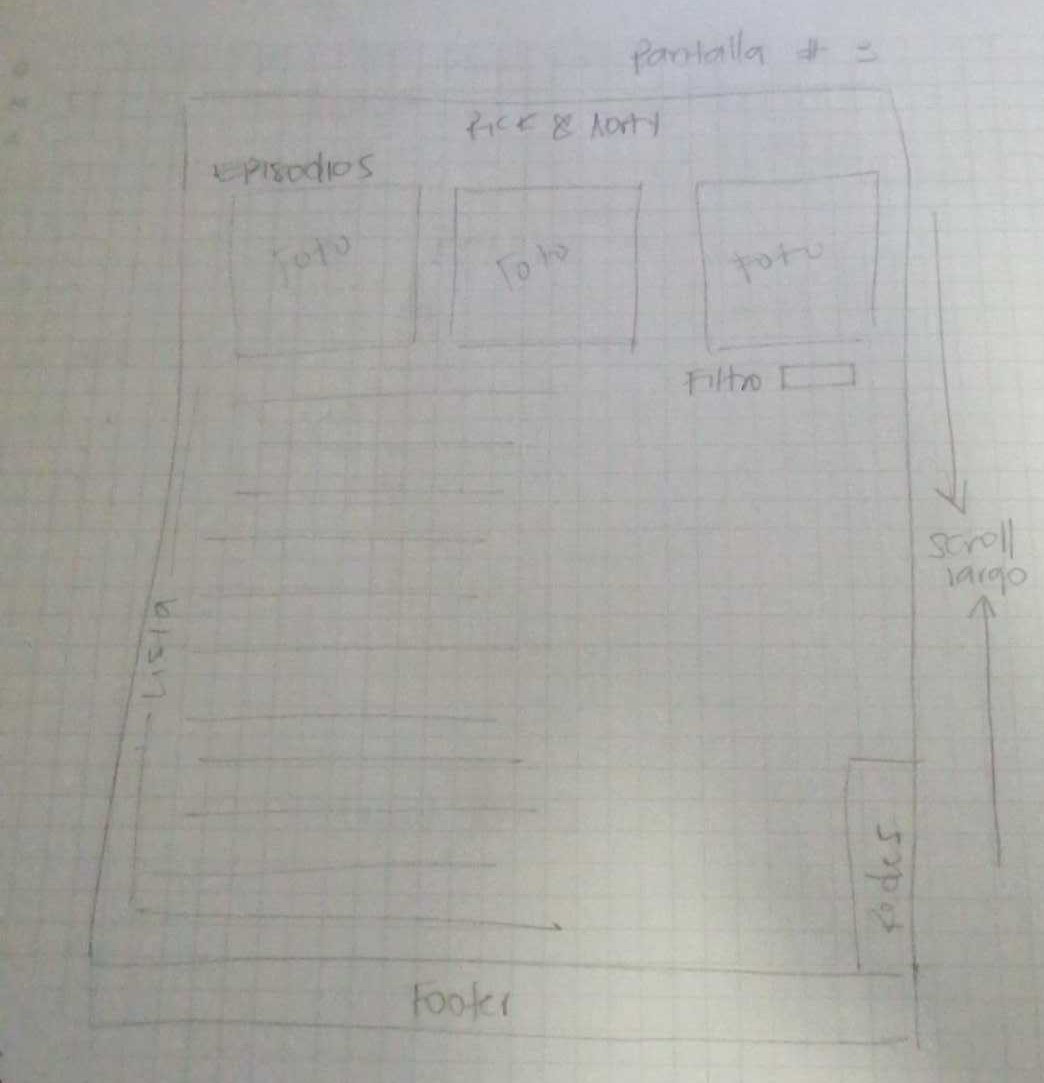 Pantalla # 3
Rick & Morty
Episodios
Foto
Foto
Foto
Filtro
scroll
largo
Lista
Redes
Footer